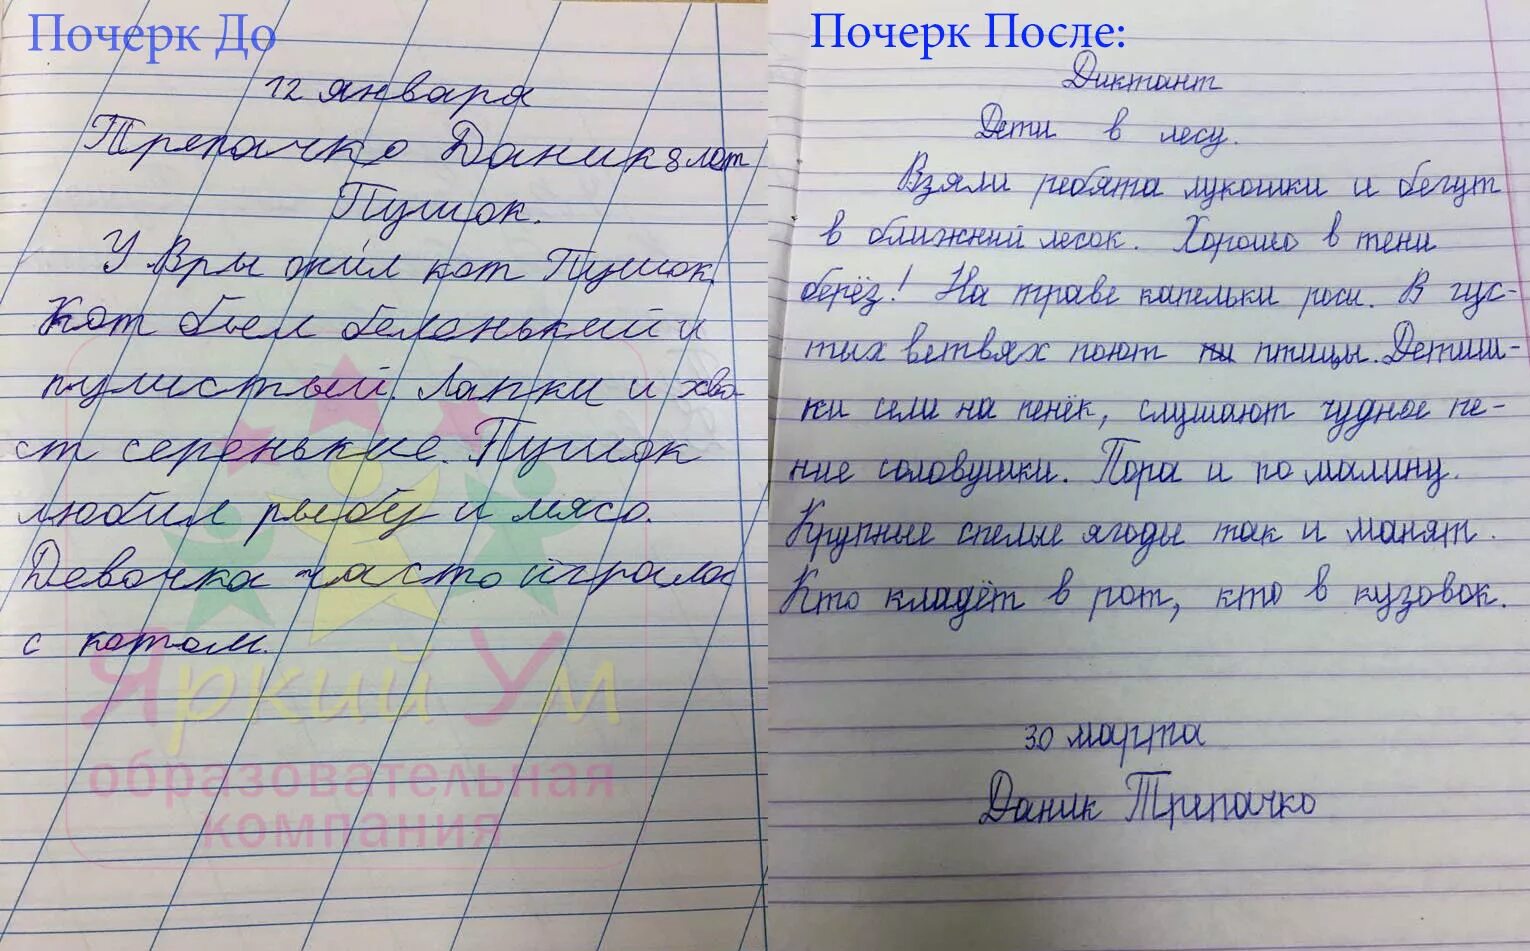 Почерк До
12 января
Трепачко Даник 8 лет
Пушок.
У Вры жил кот Пушок.
Кот был беленький и
пушистый. Лапки и хво-
ст серенькие. Пушок
любил рыбу и мясо.
Девочка часто играла
с котом.
Яркий Ум
образовательная
компания
Почерк После:
Диктант
Дети в лесу.
Взяли ребята лукошки и бегут
в ближний лесок. Хорошо в тени
берёз! На траве капельки росы. В гус-
тых ветвях поют птицы. Детиш-
ки сели на пенёк, слушают чудное пе-
ние соловушки. Пора и по малину.
Крупные спелые ягоды так и манят.
Кто кладёт в рот, кто в кузовок.
30 марта
Даник Трепачко